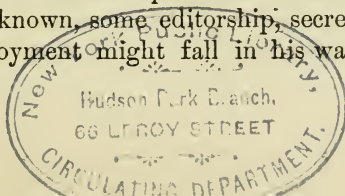 known, some editorship, secre
oyment might fall in his wa
New York Public Library,
Hudson Park Branch,
66 LEROY STREET
CIRCULATING DEPARTMENT.